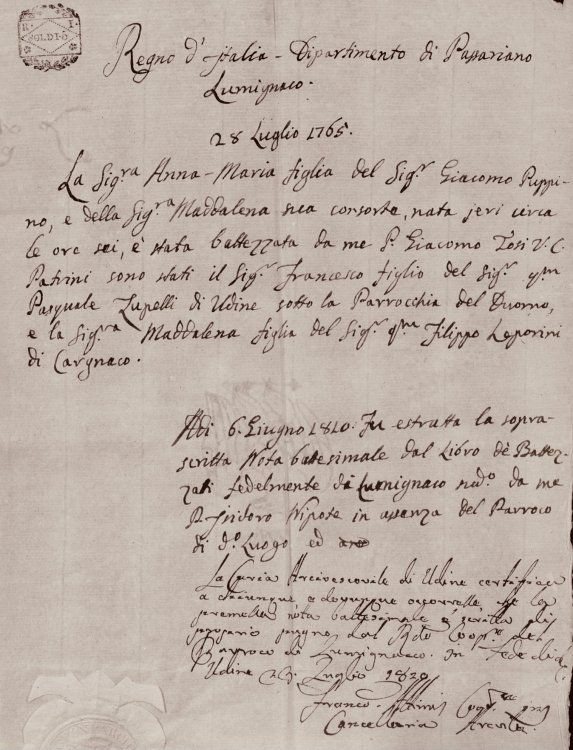 R. I.
SOLDI 5
Regno d'Italia - Dipartimento di Passariano
Lumignaco.
28 Luglio 1765.
La Sig.ra Anna-Maria figlia del Sig.r Giacomo Puppi-
no, e della Sig.ra Maddalena sua consorte, nata jeri circa
le ore sei, è stata battezzata da me P. Giacomo Tosi V. C.
Patrini sono stati il Sig.r Francesco figlio del Sig.r qm
Pasquale Zupelli di Udine sotto la Parrocchia del Duomo,
e la Sig.ra Maddalena figlia del Sig.r qm Filippo Leporini
di Cargnaco.
Adi 6. Giugno 1810. Fu estratta la sopra-
scritta Nota battesimale dal Libro de' Battez-
zati fedelmente di Lumignaco sud.o da me
P. Isidoro Nipote in assenza del Parroco
di d.o Luogo ed
La Curia Arcivescovile di Udine certifica
a chiunque e dovunque occorresse, che la
premessa nota battesimale è scritta di
proprio pugno dal Rdo Coop.re del
Parroco di Lumignaco. In fede di che
Udine Luglio 1820
Franco
Cancellaria